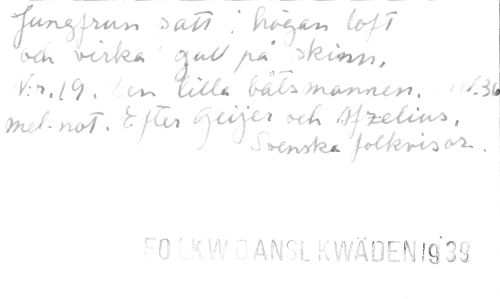 Jungfrun satt i högan loft
och virka' gull på skinn.
N:r. 19. Den lilla båtsmannen. 36
mel. not. Efter Geijer och Afzelius,
Svenska folkvisor.
FOLKW DANSL KWÄDEN 1939